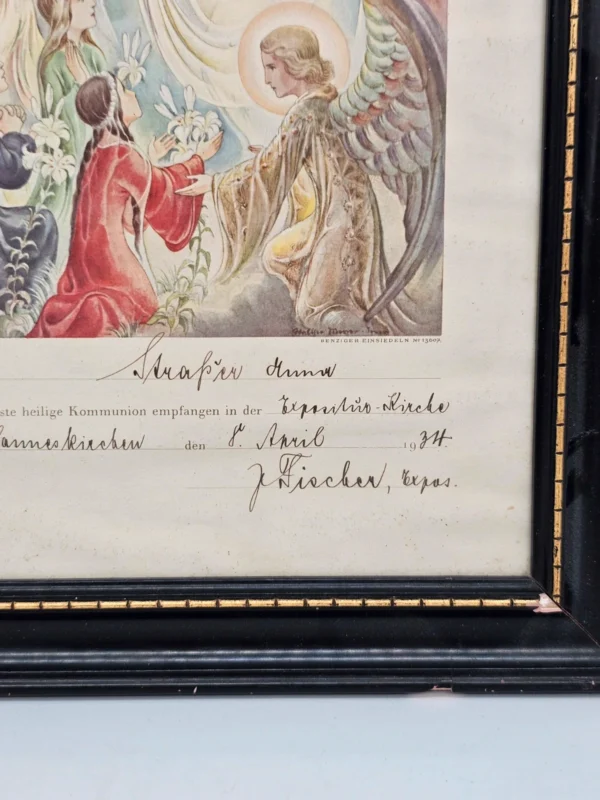 BENZIGER EINSIEDELN Nº 13607.
Straßer Anna
ste heilige Kommunion empfangen in der Expositur-Kirche
anneskirchen den 8. April 1934.
J. Fischer, Expos.